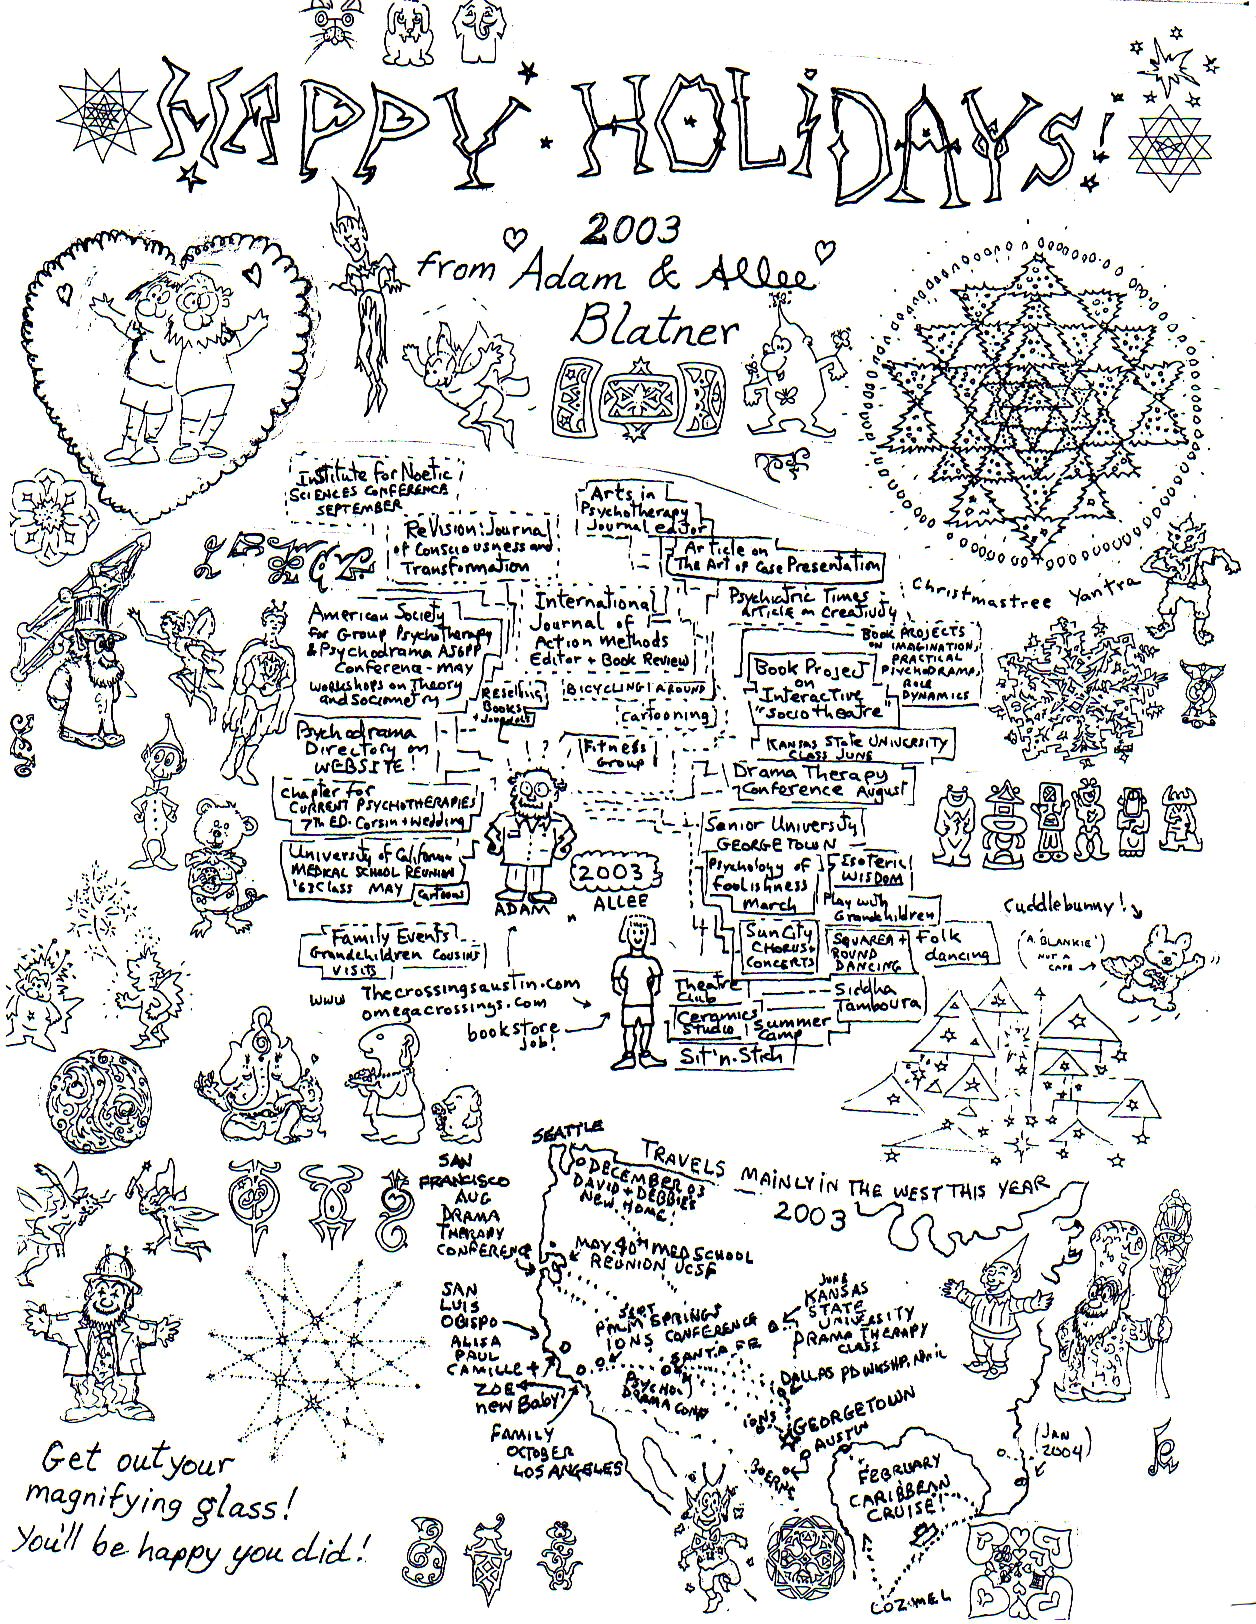 HAPPY · HOLiDAYS!
2003
from Adam & Allee
Blatner
Institute for Noetic
SCIENCES CONFERENCE
SEPTEMBER
ReVision: Journal
of Consciousness and
Transformation
Arts in
Psychotherapy
Journal editor
Article on
The Art of Case Presentation
Christmastree Yantra
American Society
for Group Psychotherapy
& Psychodrama ASGPP
Conference - MAY
workshops on Theory
and Sociometry
International
Journal of
Action Methods
Editor + Book Review
Psychiatric Times -
article on Creativity
BOOK PROJECTS
ON IMAGINATION,
PRACTICAL
PSYCHODRAMA,
ROLE
DYNAMICS
Book Project
on
Interactive
"Sociotheatre"
Reselling
Books
BICYCLING AROUND
Cartooning
Psychodrama
Directory on
WEBSITE!
Fitness
Group
KANSAS STATE UNIVERSITY
CLASS JUNE
Drama Therapy
Conference August
Chapter for
CURRENT PSYCHOTHERAPIES
7th ED. Corsini + Wedding
Senior University
GEORGETOWN
Psychology of
foolishness
March
Esoteric
WISDOM
University of California
MEDICAL SCHOOL REUNION
'63 Class MAY
Cartoons
2003
ADAM
ALLEE
Play with
Grandchildren
Family Events
Grandchildren Cousins
visits
Sun City
CHORUS +
CONCERTS
SQUARE +
ROUND
DANCING
Folk
dancing
Cuddlebunny!
(A "BLANKIE"
NOT A
CAPE)
www Thecrossingsaustin.com
omegacrossings.com
bookstore
job!
Theatre
Club
Siddha
Tamboura
Ceramics
Studio
Summer
Camp
Sit 'n. Stich
SEATTLE
TRAVELS MAINLY IN THE WEST THIS YEAR
2003
DECEMBER 03
DAVID + DEBBIE'S
NEW HOME!
SAN
FRANCISCO
AUG
DRAMA
THERAPY
CONFERENCE
MAY. 40th MED SCHOOL
REUNION UCSF
SAN
LUIS
OBISPO
ALISA
PAUL
CAMILLE +
ZOE
new Baby
SEPT
PALM SPRINGS
IONS CONFERENCE
SANTA FE
PSYCHO
DRAMA CONF
JUNE
KANSAS
STATE
UNIVERSITY
DRAMA THERAPY
CLASS
DALLAS PD WKSHP. April
IONS
GEORGETOWN
AUSTIN
BOERNE
FAMILY
OCTOBER
LOS ANGELES
FEBRUARY
CARIBBEAN
CRUISE!
(JAN
2004)
COZUMEL
Get out your
magnifying glass!
You'll be happy you did!